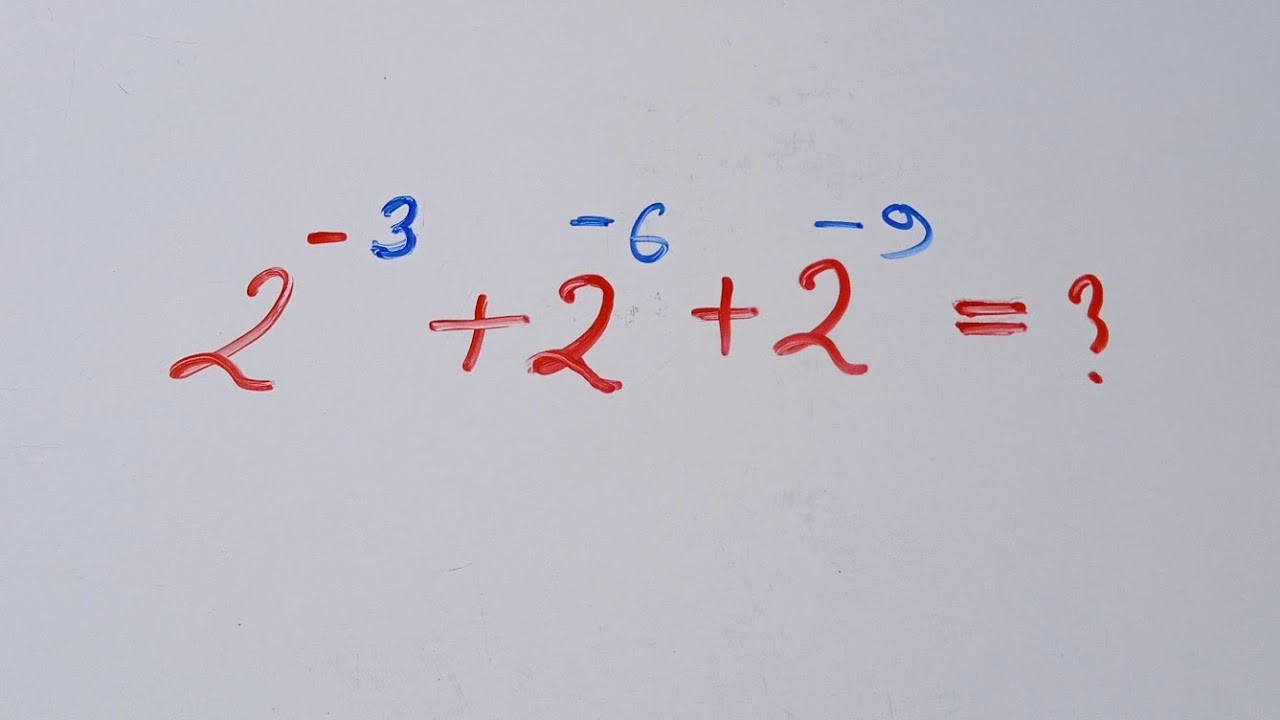 2⁻³ + 2⁻⁶ + 2⁻⁹ = ?